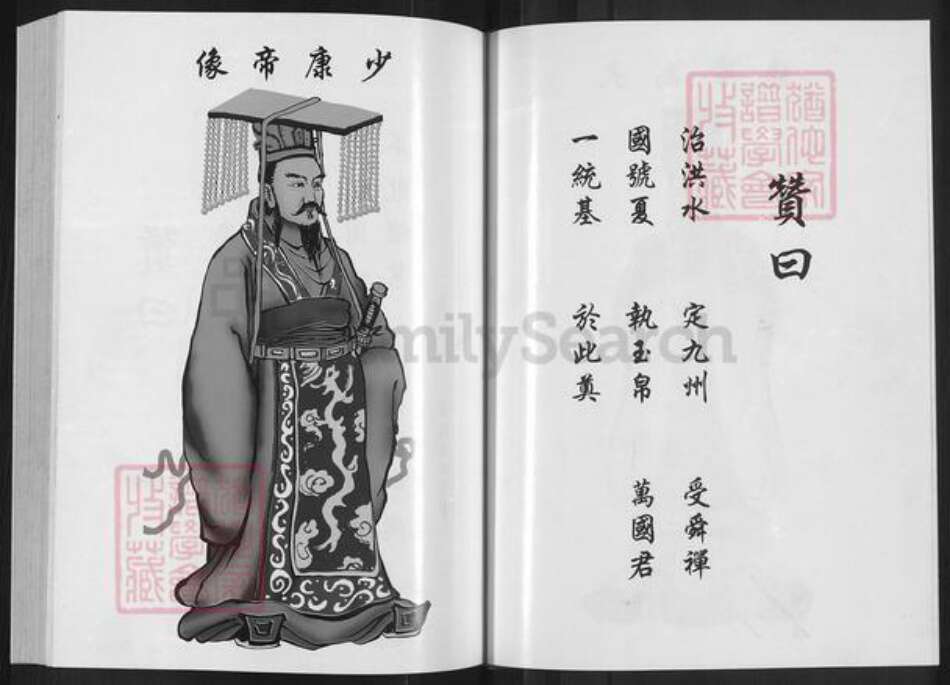 贊曰
治洪水 定九州 受舜禪
國號夏 執玉帛 萬國君
一統基 於此奠
少康帝像
FamilySearch